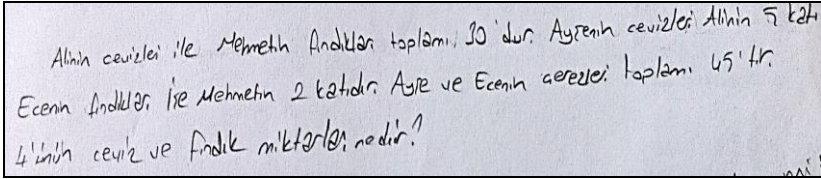 Alinin cevizleri ile Mehmetin fındıkları toplamı 30'dur. Ayşenin cevizleri Alinin 5 katı
Ecenin fındıkları ise Mehmetin 2 katıdır. Ayşe ve Ecenin çerezleri toplamı 45'tir.
4'ünün ceviz ve fındık miktarları nedir?